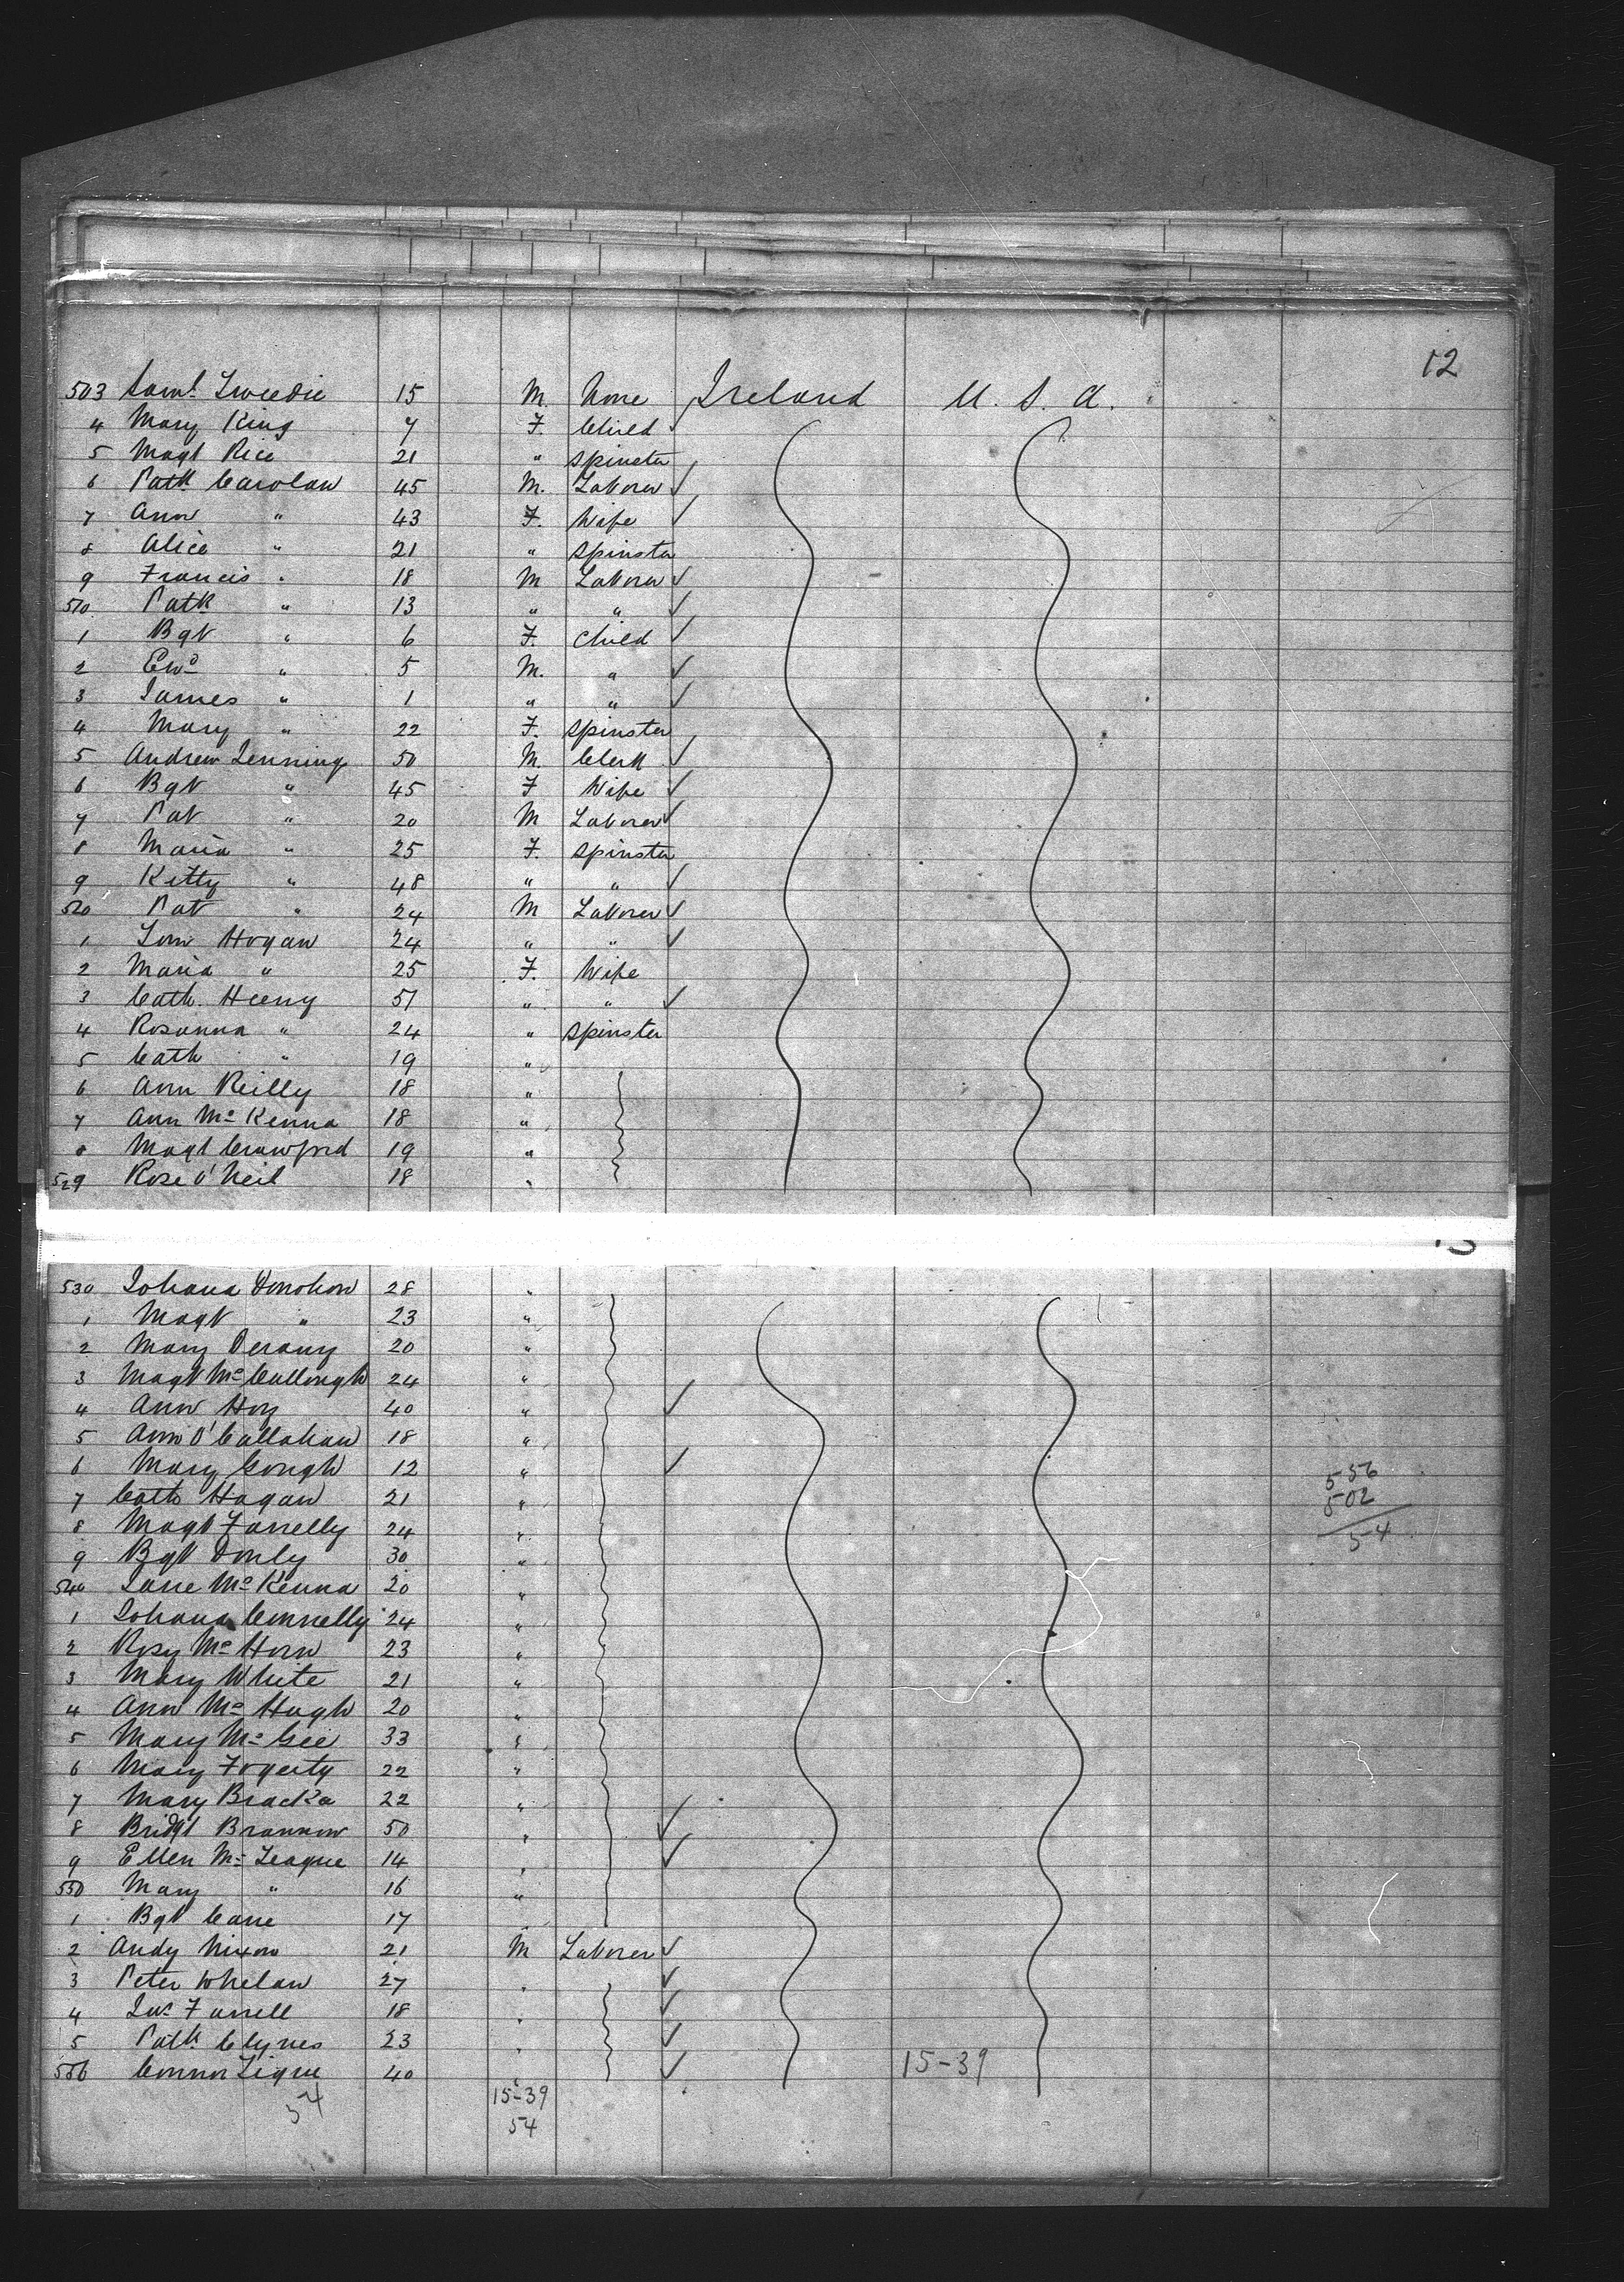 12
503 Saml. Tweedie 15 M. None Ireland U. S. A.
4 Mary King 7 F. Child
5 Magt Rice 21 " Spinster
6 Patk Carolan 45 M. Laborer ✓
7 Ann " 43 F. Wife ✓
8 Alice " 21 " Spinster
9 Francis " 18 M Laborer ✓
510 Patk " 13 " " ✓
1 Bgt " 6 F. Child ✓
2 Ewd " 5 M. " ✓
3 James " 1 " " ✓
4 Mary " 22 F. Spinster
5 Andrew Jennings 50 M. Clerk ✓
6 Bgt " 45 F Wife ✓
7 Pat " 20 M Laborer ✓
8 Maria " 25 F. Spinster
9 Kitty " 48 " " ✓
520 Pat " 24 M Laborer ✓
1 Tom Hogan 24 " " ✓
2 Maria " 25 F. Wife
3 Cath. Heeny 51 " " ✓
4 Rosanna " 24 " Spinster
5 Cath " 19 "
6 Ann Reilly 18 "
7 Ann Mc Kenna 18 "
8 Magt Crawford 19 "
529 Rose O'Neil 18 "
530 Johana Donohow 28 "
1 Magt " 23 "
2 Mary Derany 20 "
3 Magt Mc Cullough 24 "
4 Ann Hoy 40 " ✓
5 Ann O'Callahan 18 "
6 Mary Gough 12 " ✓
7 Cath Hagan 21 "
8 Magt Farrelly 24 "
9 Bgt Donly 30 "
540 Jane Mc Kenna 20 "
1 Johana Connelly 24 "
2 Rosy Mc Horn 23 "
3 Mary White 21 "
4 Ann Mc Hugh 20 "
5 Mary Mc Gee 33 "
6 Mary Fogerty 22 "
7 Mary Bracka 22 "
8 Bridgt Brannon 50 " ✓
9 Ellen Mc Teague 14 " ✓
550 Mary " 16 "
1 Bgt Cane 17 "
2 Andy Nixon 21 M Laborer ✓
3 Peter Whelan 27 " ✓
4 Jas. Farrell 18 " ✓
5 Patk Clynes 23 " ✓
556 Connor Tigue 40 " ✓ 15-39
556
502
54
54 15-39
54